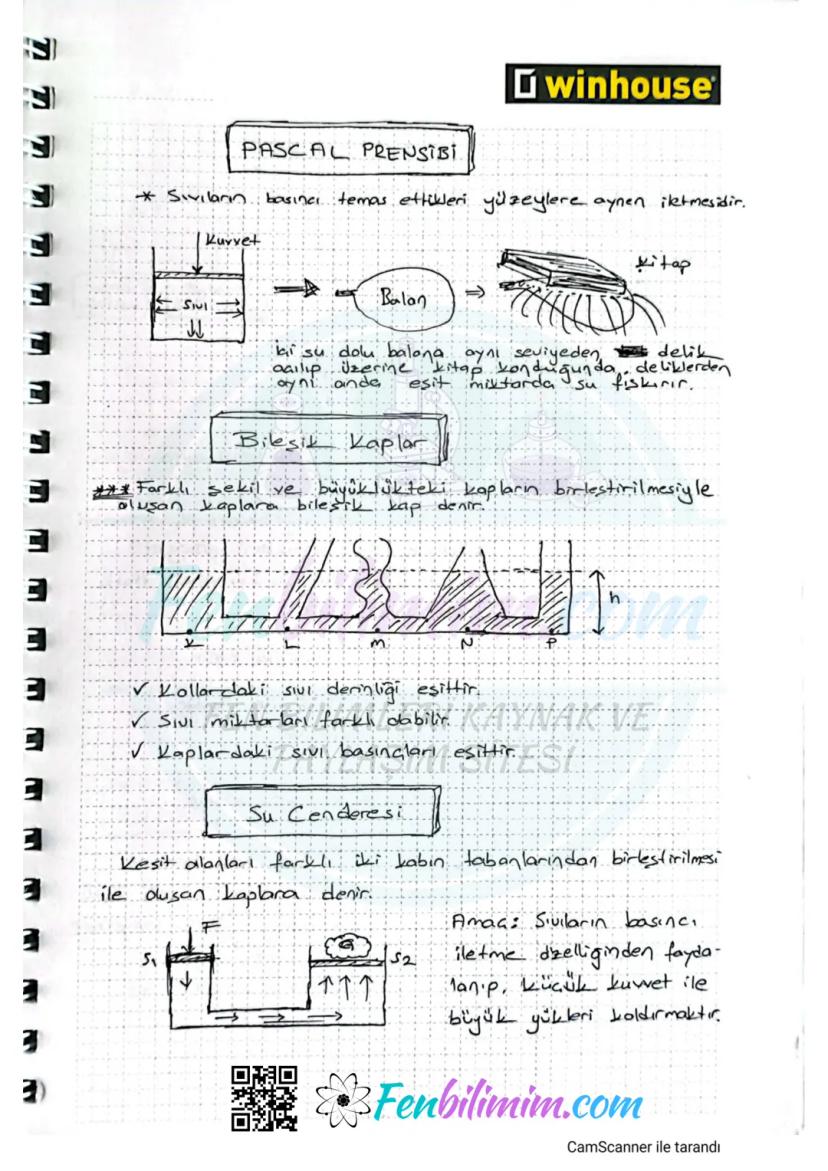 winhouse
PASCAL PRENSİBİ
* Sıvıların basıncı temas ettikleri yüzeylere aynen iletmesidir.
Kuvvet
kitap
Sıvı
Balon
İki su dolu balona aynı seviyeden delik
açılıp üzerine kitap konduğunda, deliklerden
aynı anda eşit miktarda su fışkırır.
Bileşik Kaplar
*** Farklı şekil ve büyüklükteki kapların birleştirilmesiyle
oluşan kaplara bileşik kap denir.
h
K L M N P
Fenbilimim.com
✓ Kollardaki sıvı derinliği eşittir.
✓ Sıvı miktarları farklı olabilir.
FEN BİLİMLERİ KAYNAK VE
✓ Kaplardaki sıvı basınçları eşittir.
PAYLAŞIM SİTESİ
Su Cenderesi
Kesit alanları farklı iki kabın tabanlarından birleştirilmesi
ile oluşan kaplara denir.
F
S1 G S2
Amaç: Sıvıların basıncı
iletme özelliğinden fayda-
lanıp, küçük kuvvet ile
büyük yükleri kaldırmaktır.
Fenbilimim.com
CamScanner ile tarandı